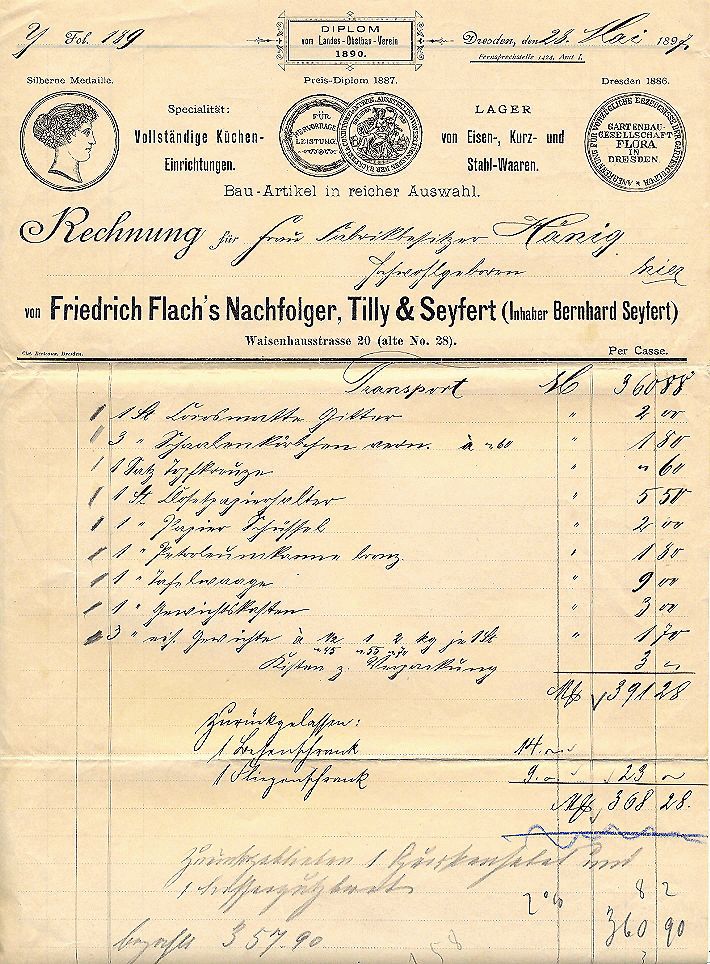 Fol. 189
DIPLOM
vom Landes-Obstbau-Verein
1890.
Dresden, den 28. Mai 1897.
Fernsprechstelle 1424, Amt I.
Silberne Medaille.
Preis-Diplom 1887.
Dresden 1886.
Specialität:
Vollständige Küchen-
Einrichtungen.
FÜR
HERVORRAG.
LEISTUNG
LAGER
von Eisen-, Kurz- und
Stahl-Waaren.
GARTENBAU-
GESELLSCHAFT
FLORA
IN
DRESDEN
Bau-Artikel in reicher Auswahl.
Rechnung für Frau Fabrikbesitzer Hänig
Hochwohlgeboren hier
von Friedrich Flach's Nachfolger, Tilly & Seyfert (Inhaber Bernhard Seyfert)
Waisenhausstrasse 20 (alte No. 28).
Per Casse.
Transport M 360 88
1 St Cocosmatte Gitter " 2 00
3 " Schaalenkörbchen vern. à " 60 " 1 80
1 Satz Topfkreuze " " 60
1 St Closetpapierhalter " 5 50
1 " Papier Schüssel " 2 00
1 " Petroleumkanne bronz. " 1 80
1 " Tafelwaage " 9 00
1 " Gewichtskasten " 3 00
3 " eis. Gewichte à 1/2 1 2 kg je 1 St " 1 70
" 45 " 55 " 70
Kisten z. Verpackung 3 "
Mk 391 28
Zurückgelassen:
1 Besenschrank 14. "
1 Fliegenschrank 9. " 23 "
Mk 368 28.
Zurückgeblieben 1 Gurkenhobel und
1 Messerputzbrett
2% 8 2
360 90
bezahlt 357.90